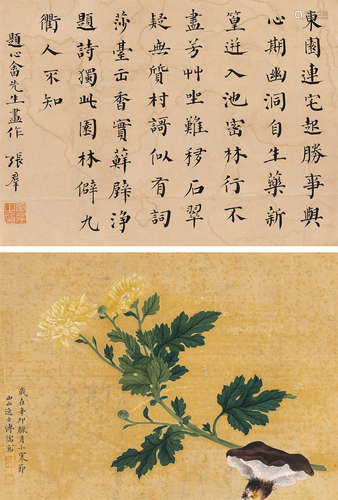 東園連宅起勝事與
心期幽洞自生藥新
篁迸入池密林行不
盡芳艸坐難移石翠
疑無質村謌似有詞
莎臺缶香實蘚壁淨
題詩獨此園林僻九
衢人不知
題心畬先生畫作 張羣
歲在辛卯臘月小寒節